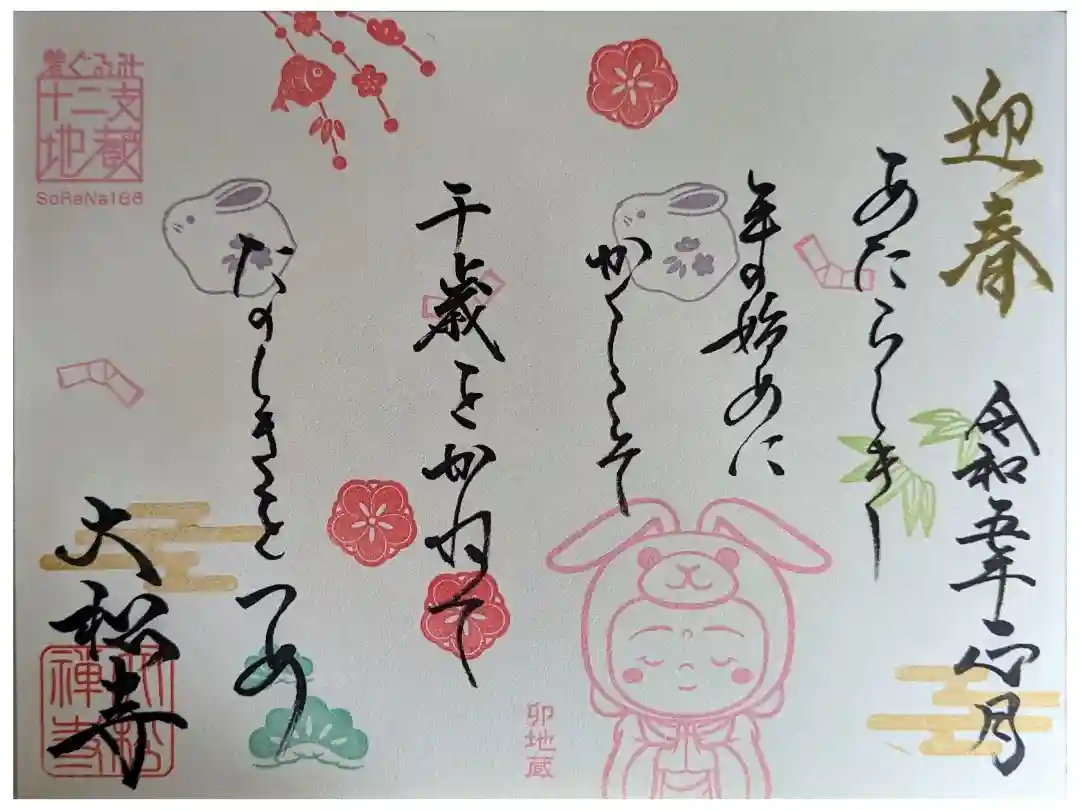 迎春
令和五年正月
あたらしき
年の始めに
かくしこそ
千歳をかねて
たのしきをつめ
大松寺
着ぐるみ
十二支
地蔵
SoRaNa168
卯地蔵